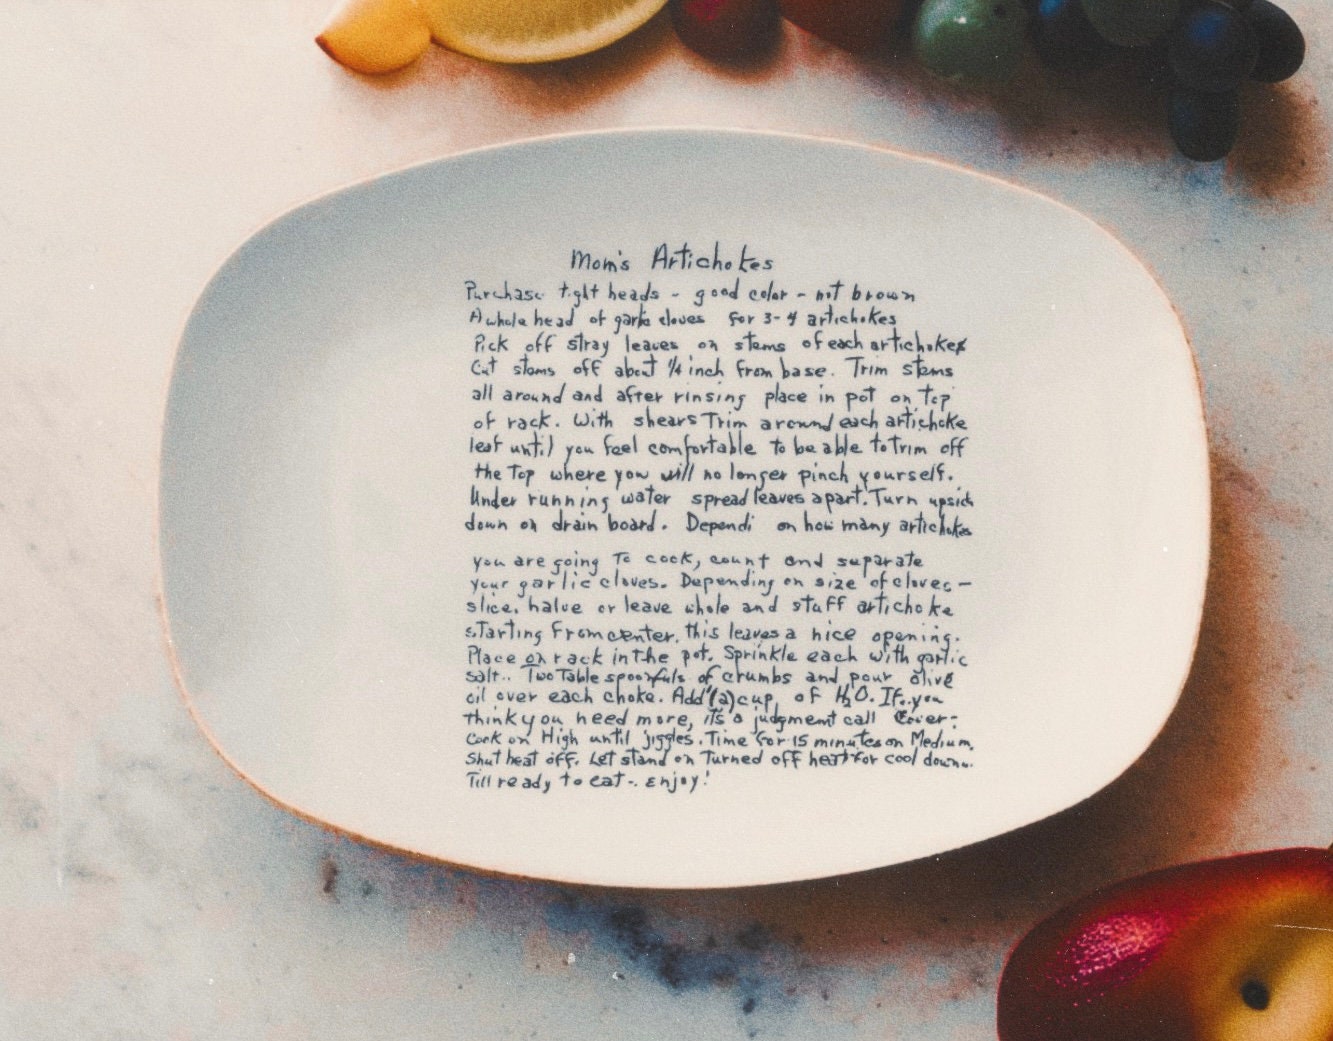 Mom's Artichokes
Purchase tight heads - good color - not brown
A whole head of garlic cloves for 3-4 artichokes
Pick off stray leaves on stems of each artichokes
Cut stems off about 1/4 inch from base. Trim stems
all around and after rinsing place in pot on top
of rack. With shears Trim around each artichoke
leaf until you feel comfortable to be able to trim off
the Top where you will no longer pinch yourself.
Under running water spread leaves apart. Turn upside
down on drain board. Dependi on how many artichokes
you are going To cook, count and separate
your garlic cloves. Depending on size of cloves -
slice, halve or leave whole and stuff artichoke
starting from center. this leaves a nice opening.
Place on rack in the pot. Sprinkle each with garlic
salt.. Two Table spoonfuls of crumbs and pour olive
oil over each choke. Add (a) cup of H2O. If you
think you need more, it's a judgment call Cover-
Cook on High until jiggles. Time for 15 minutes on Medium.
Shut heat off. Let stand on Turned off heat for cool down.
Till ready to eat-. Enjoy!